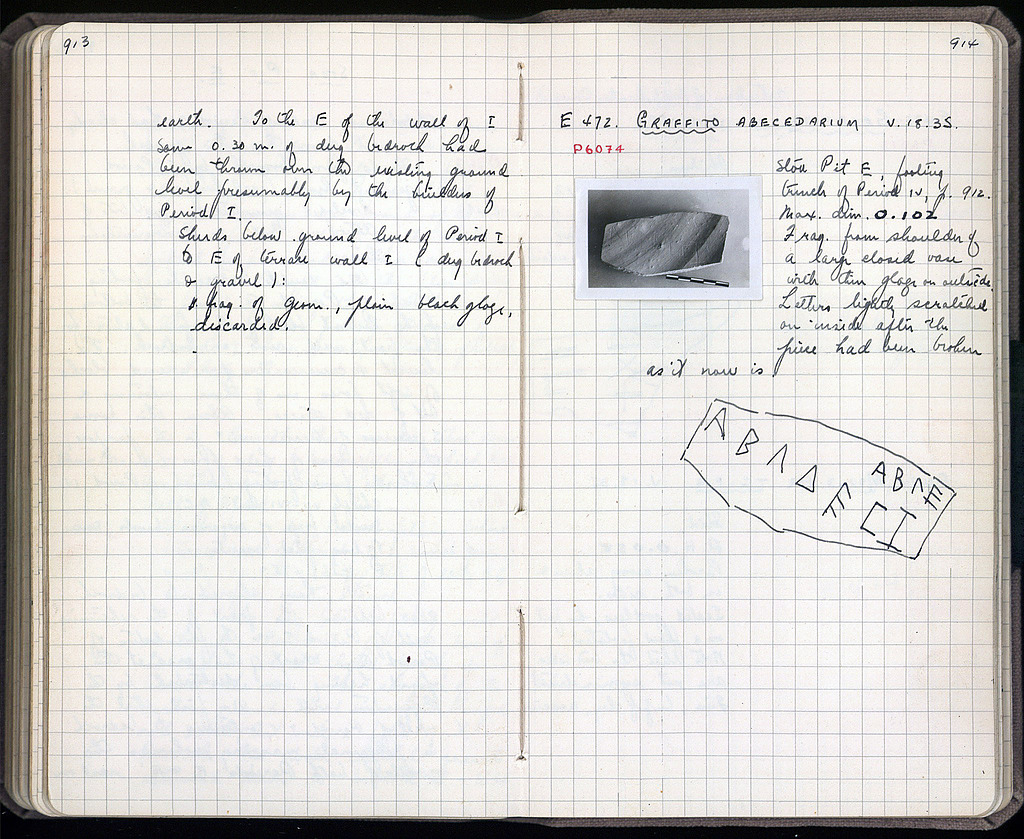 913
earth. To the E of the wall of I
some 0.30 m. of dug bedrock had
been thrown on the existing ground
level presumably by the builders of
Period I.
Sherds below ground level of Period I
to E of terrace wall I (dug bedrock
& gravel):
frag. of Geom., plain black glaze,
discarded.
914
E 472. GRAFFITO ABECEDARIUM V.18.35.
P6074
Stoa Pit E, footing
trench of Period IV, p. 912.
Max. dim. 0.102
Frag. from shoulder of
a large closed vase
with thin glaze on outside.
Letters lightly scratched
on inside after the
piece had been broken
as it now is.
Α Β Λ Δ Ε
Α Β Λ Ε
Ϲ Ι